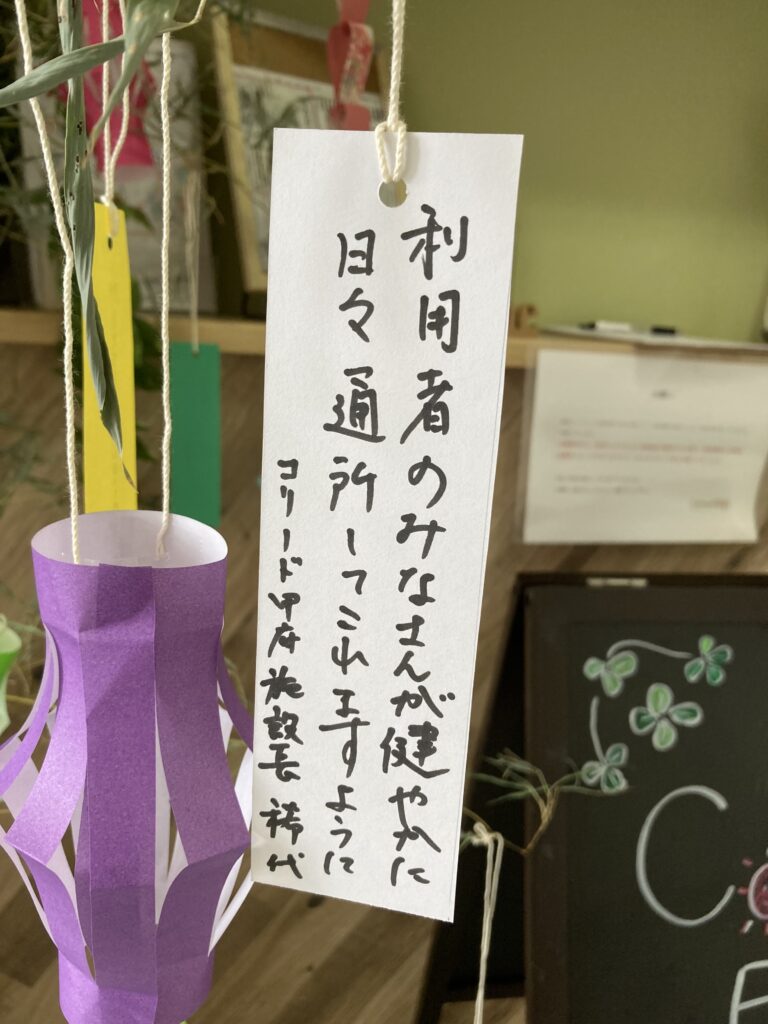 利用者のみなさんが健やかに
日々通所してこれますように
コリード甲府施設長 稀代
C